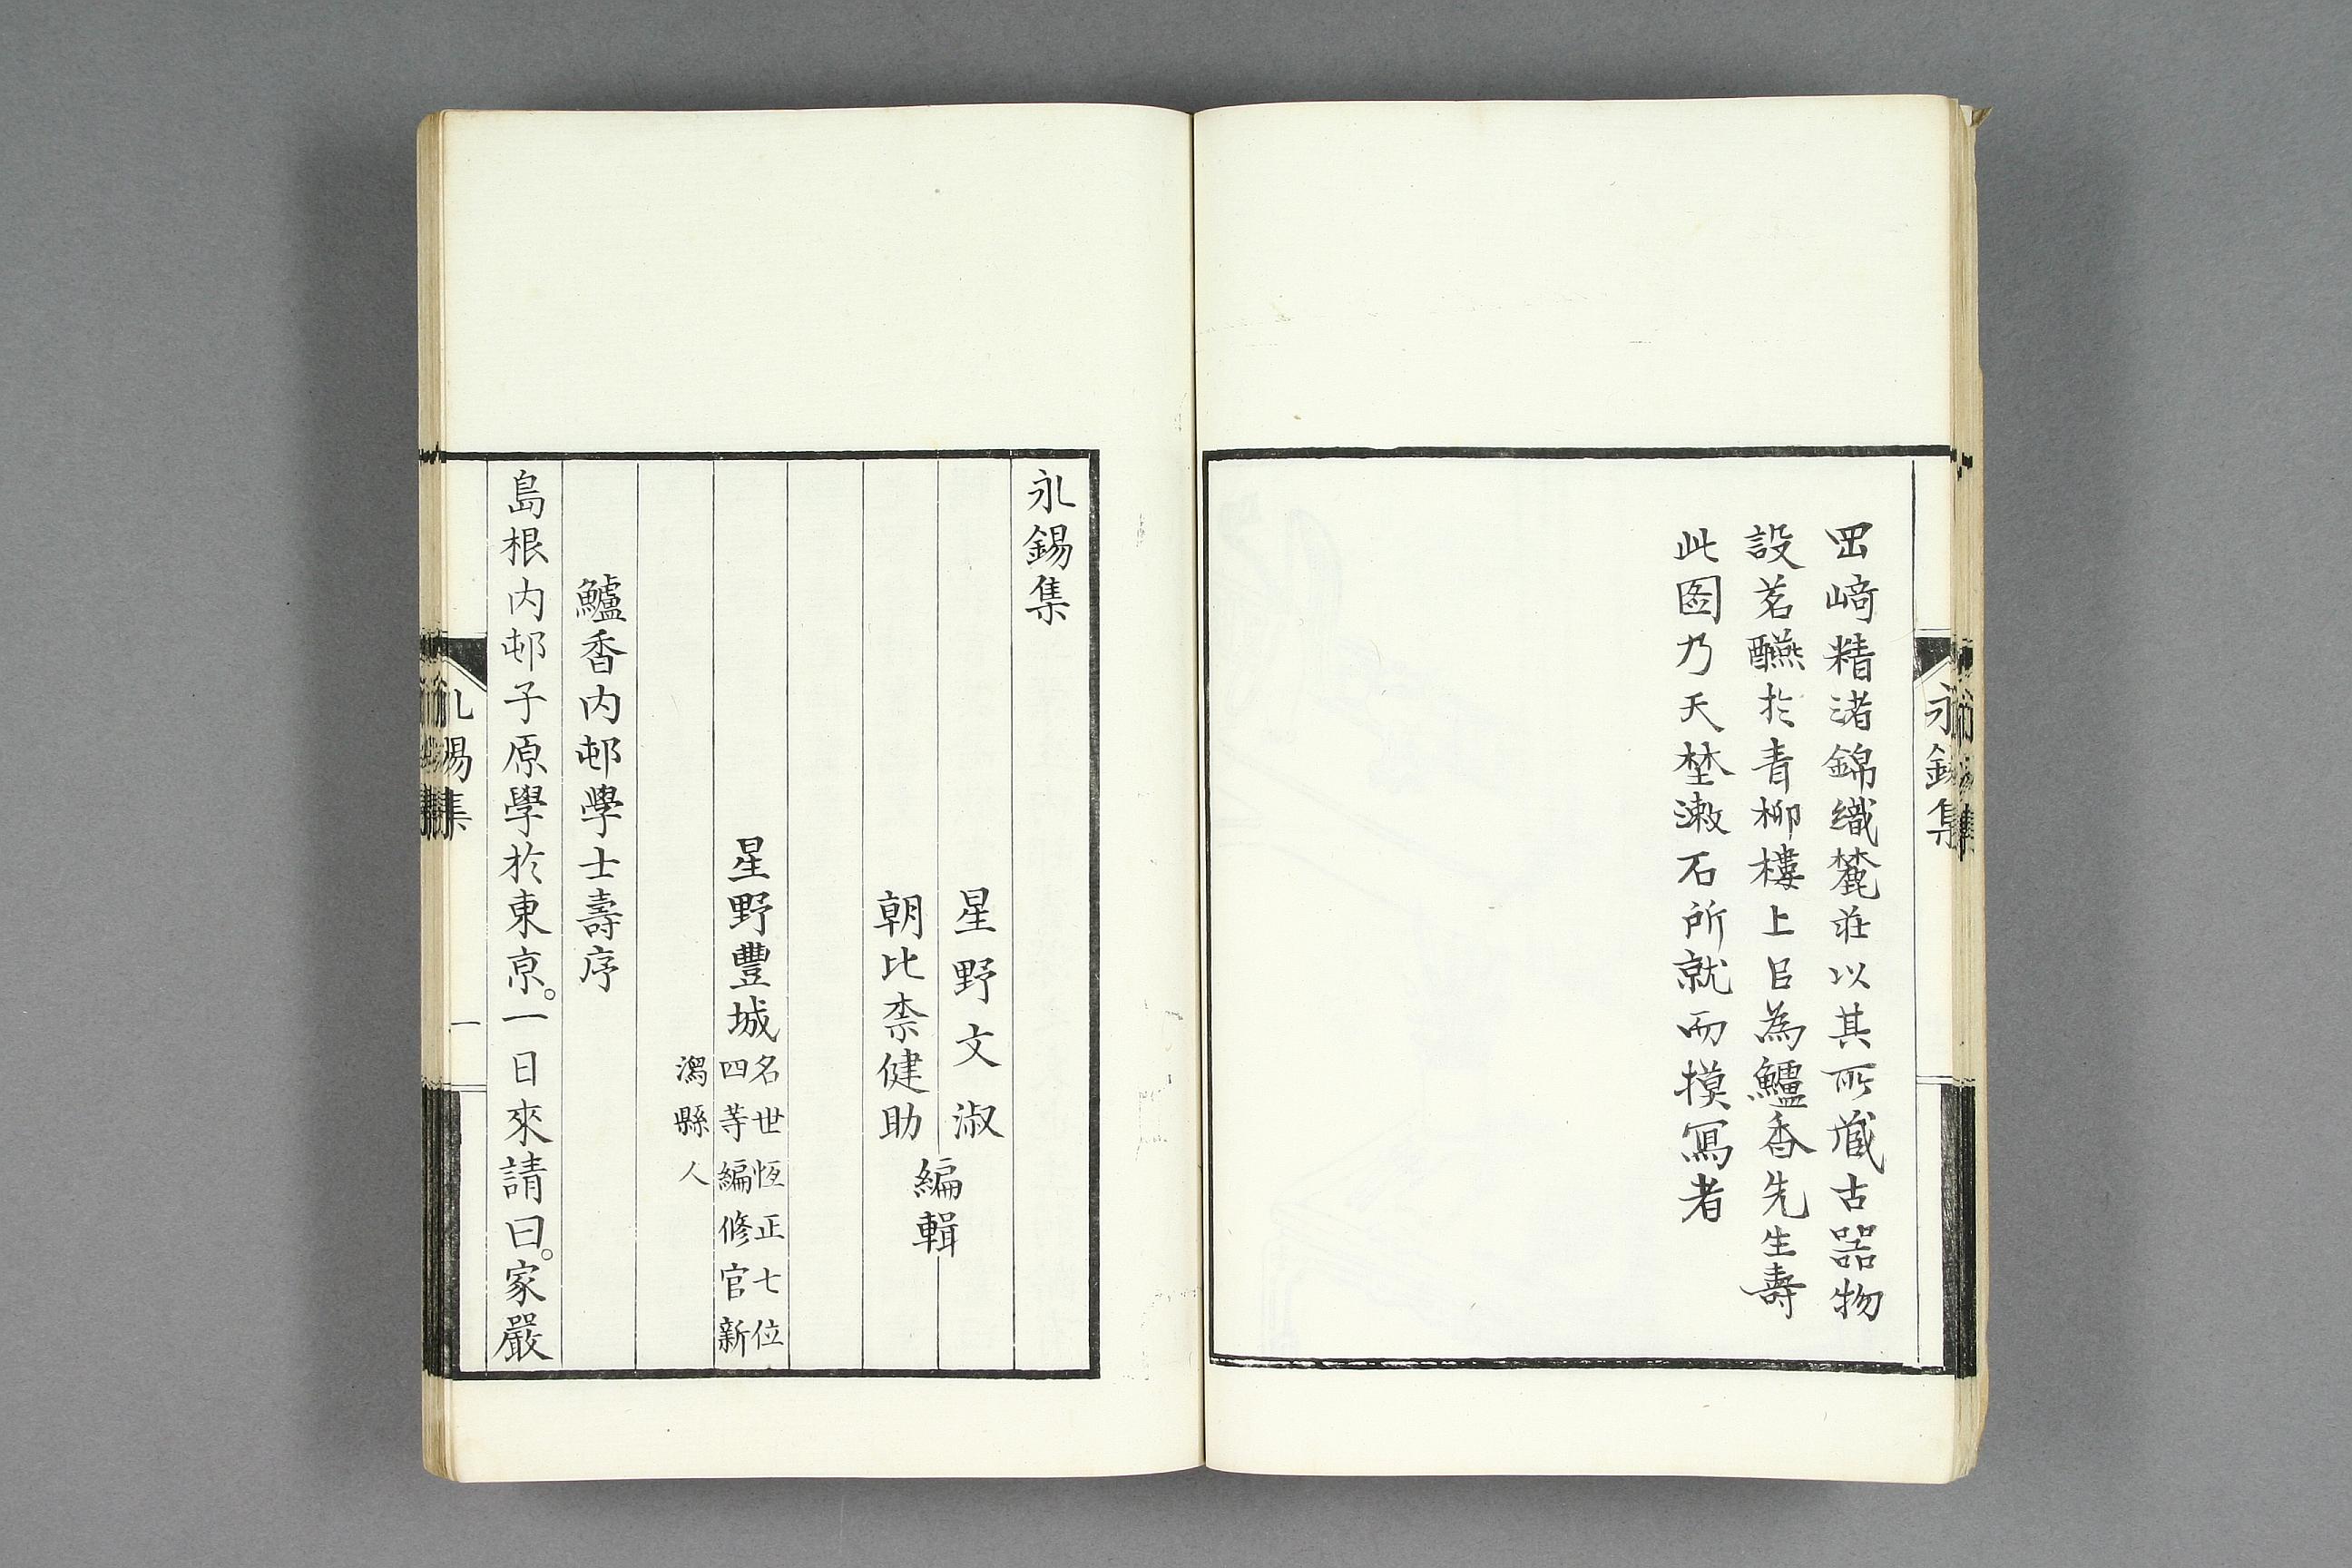 岡﨑精渚錦織麓荘以其所蔵古器物
設茗醼於青柳樓上㠯為鱸香先生壽
此図乃天埜漱石所就而摸寫者
永錫集
永錫集
星野文淑
朝比柰健助
編輯
星野豐城
名世恆正七位
四等編修官新
潟縣人
鱸香内邨學士壽序
島根内邨子原學於東京。一日來請曰。家嚴
永錫集
一